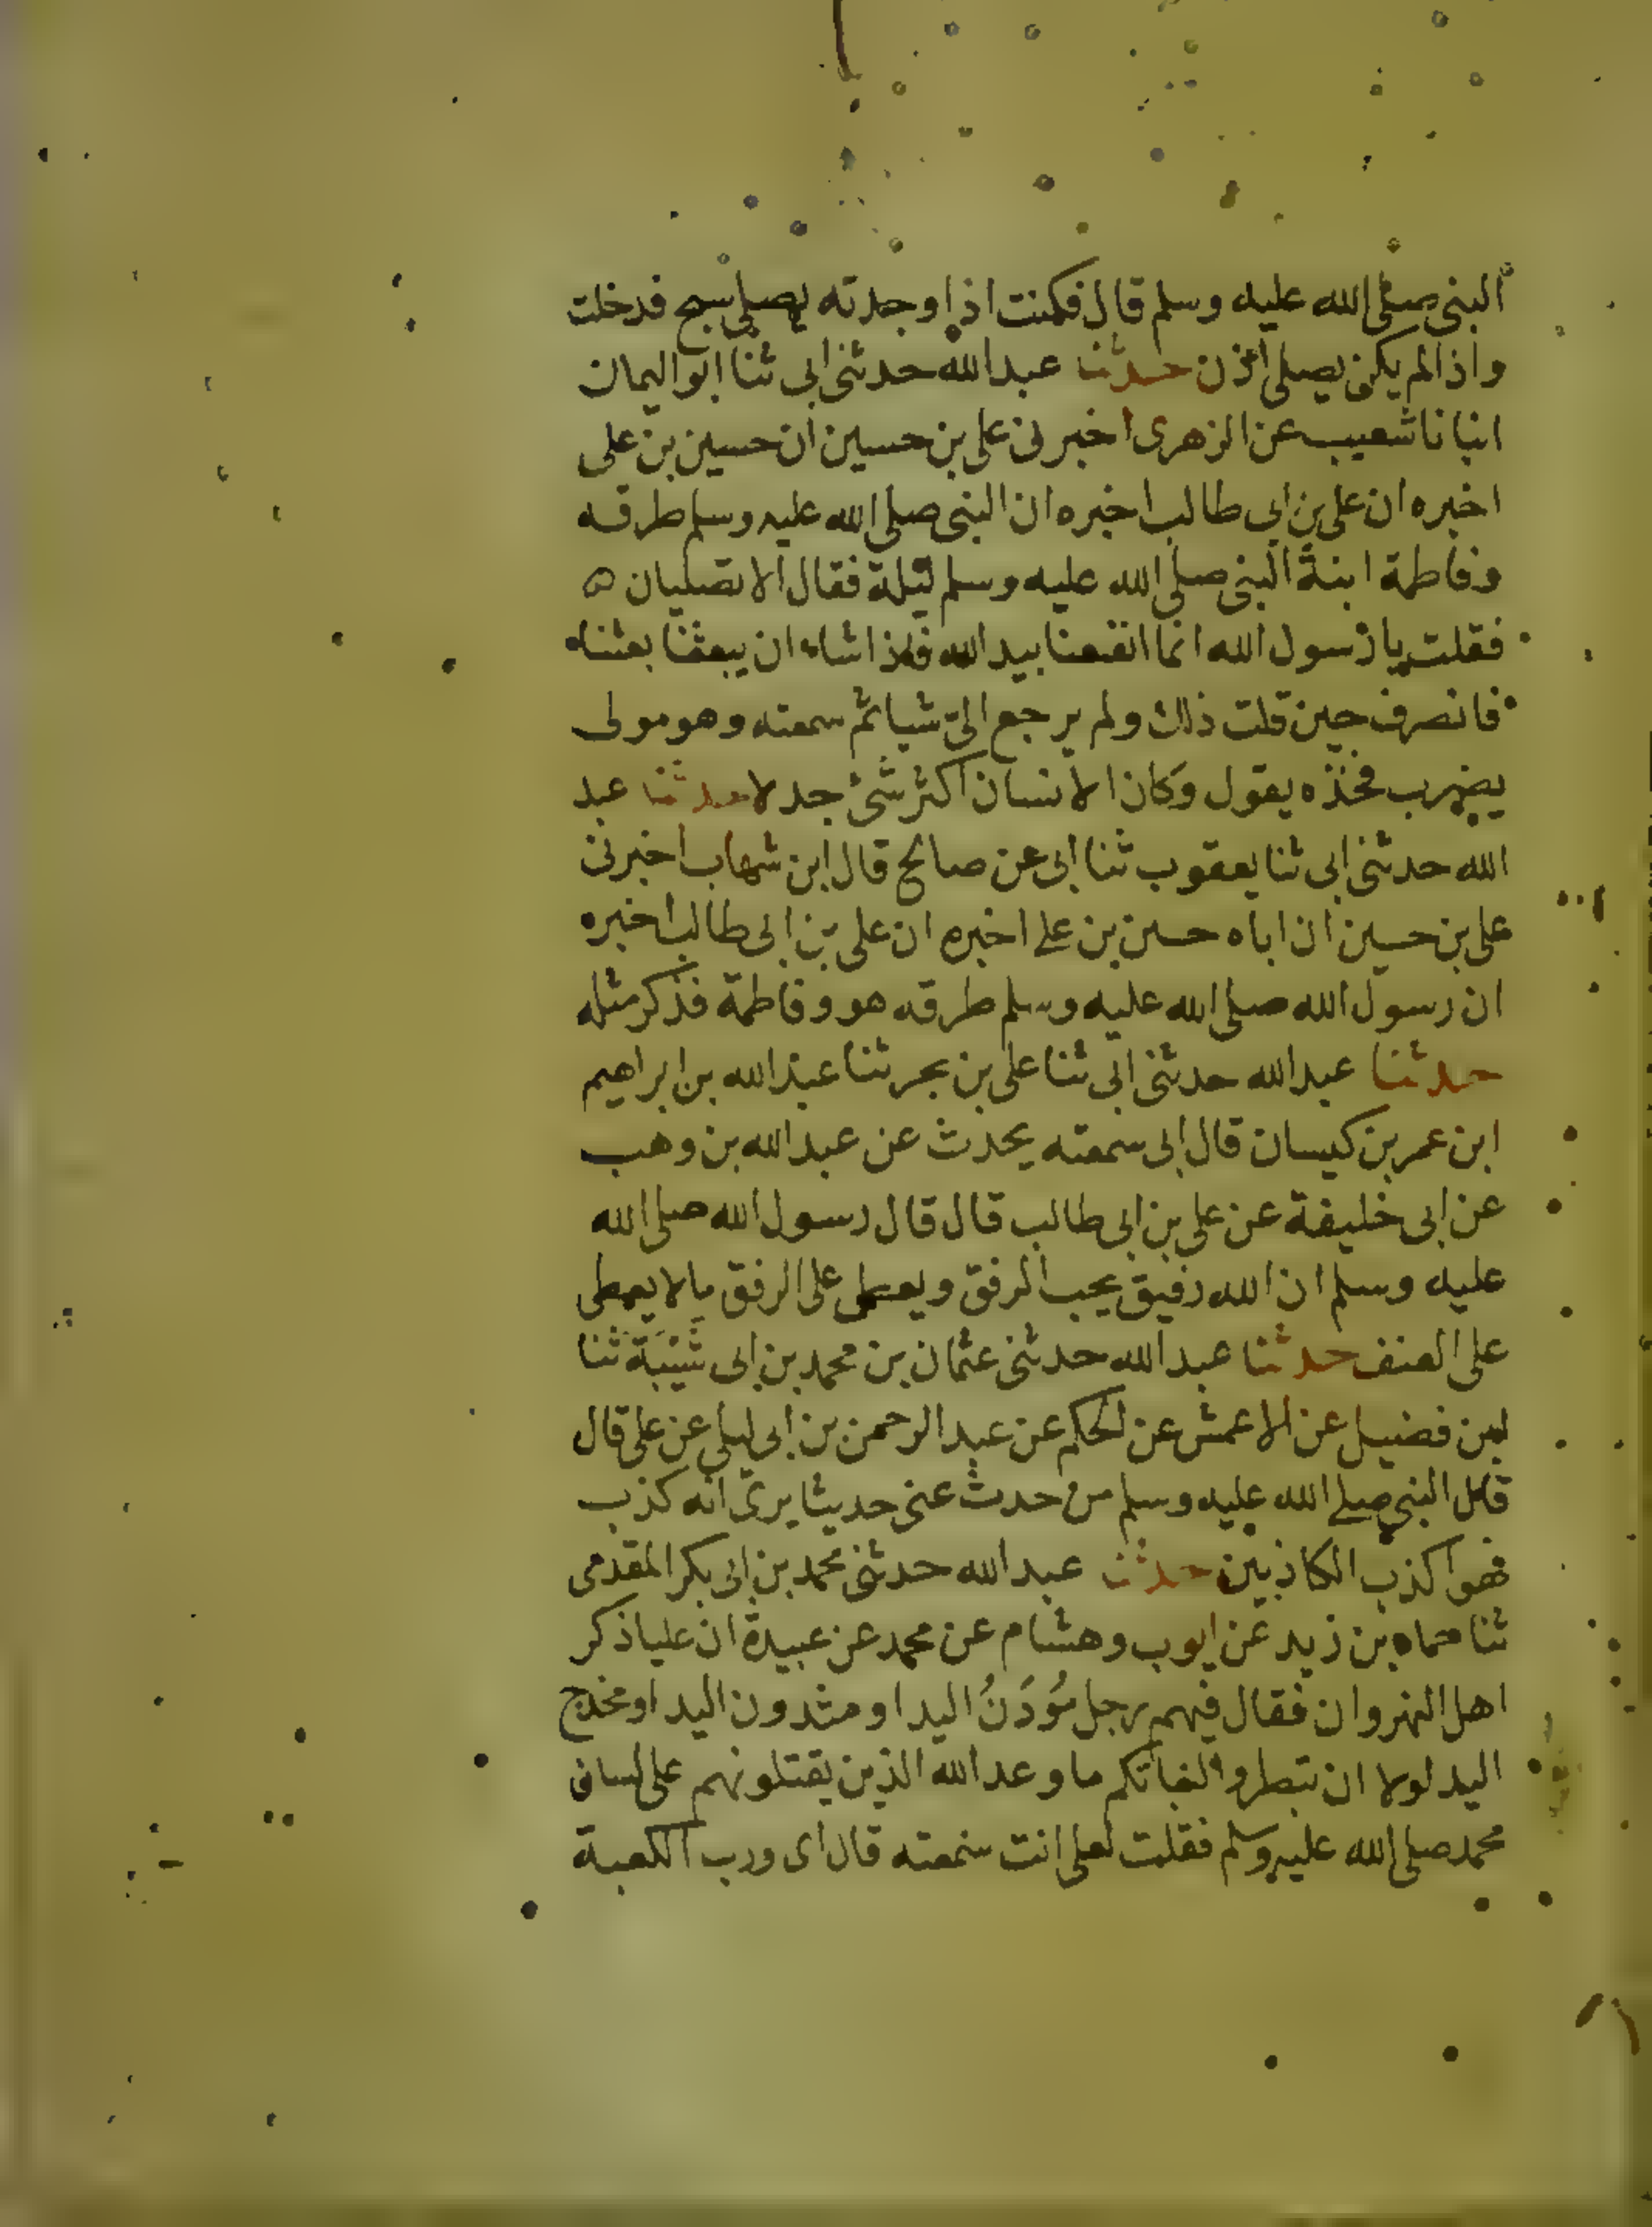 النبى صلى الله عليه وسلم قال فكنت اذا وجدته يصلى سبح فدخلت
واذا لم يكن يصلى اذن حدثنا عبدالله حدثنى ابى ثنا ابو اليمان
انبانا شعيب عن الزهرى اخبرنى على بن حسين ان حسين بن على
اخبره ان على بن ابى طالب اخبره ان النبى صلى الله عليه وسلم طرقه
وفاطمة ابنة النبى صلى الله عليه وسلم ليلة فقال الا تصليان ه
فقلت يا رسول الله انما انفسنا بيد الله فاذا شاء ان يبعثنا بعثنا
فانصرف حين قلت ذلك ولم يرجع الىّ شيا ثم سمعته وهو مولى
يضرب فخذه يقول وكان الانسان اكثر شئ جدلا حدثنا عبد
الله حدثنى ابى ثنا يعقوب ثنا ابى عن صالح قال ابن شهاب اخبرنى
على بن حسين ان اباه حسين بن على اخبره ان على بن ابى طالب اخبره
ان رسول الله صلى الله عليه وسلم طرقه هو وفاطمة فذكر مثله
حدثنا عبدالله حدثنى ابى ثنا على بن بحر ثنا عبدالله بن ابراهيم
ابن عمر بن كيسان قال ابى سمعته يحدث عن عبدالله بن وهب
عن ابى خليفة عن على بن ابى طالب قال قال رسول الله صلى الله
عليه وسلم ان الله رفيق يحب الرفق ويعطى على الرفق ما لا يعطى
على العنف حدثنا عبدالله حدثنى عثمان بن محمد بن ابى شَيْبَة ثنا
ابن فضيل عن الاعمش عن الحكم عن عبد الرحمن بن ابى ليلى عن على قال
قال النبى صلى الله عليه وسلم من حدث عنى حديثا يرى انه كذب
فهو اكذب الكاذبين حدثنا عبدالله حدثنى محمد بن ابى بكر المقدمى
ثنا حماد بن زيد عن ايوب وهشام عن محمد عن عبيدة ان عليا ذكر
اهل النهروان فقال فيهم رجل مُودَنُ اليد او مثدون اليد او مخدج
اليد لولا ان تبطروا لنباتكم ما وعد الله الذين يقتلونهم على لسان
محمد صلى الله عليه وسلم فقلت لعلى انت سمعته قال اى ورب الكعبة